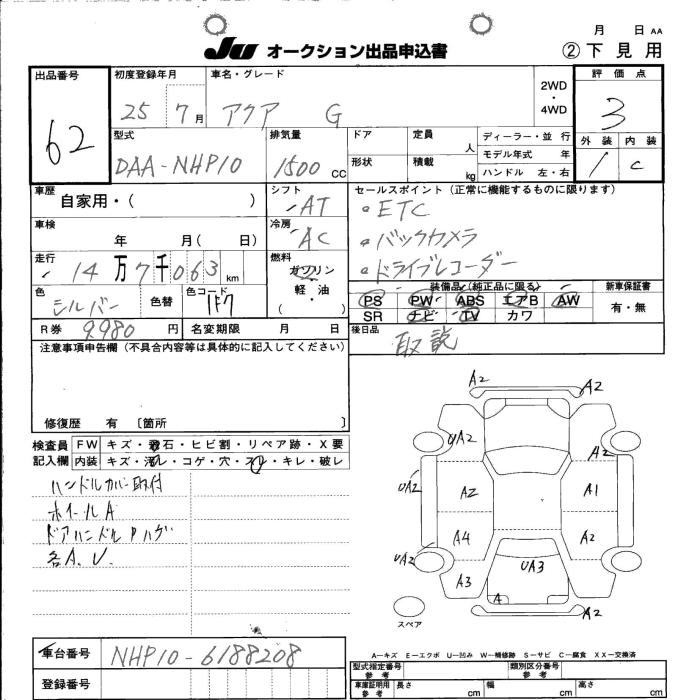 月 日 AA
JU オークション出品申込書 ②下見用
出品番号 62
初度登録年月 25 7月
車名・グレード アクア G
2WD・4WD
評価点 3
外装 内装
1 C
型式 DAA-NHP10
排気量 1500 CC
ドア 定員 人
形状 積載 kg
ディーラー・並行
モデル年式 年
ハンドル 左・右
車歴 自家用・( )
シフト AT
車検 年 月( 日)
冷房 AC
走行 14万7千063 km
燃料 ガソリン 軽油 ・ ( )
色 シルバー 色替 色コード 1F7
R券 9,980円 名変期限 月 日
セールスポイント(正常に機能するものに限ります)
ETC
バックカメラ
ドライブレコーダー
装備品(純正品に限る) 新車保証書
PS PW ABS エアB AW
SR ナビ TV カワ 有・無
後日品 取説
注意事項申告欄(不具合内容等は具体的に記入してください)
修復歴 有 〔箇所 〕
検査員 記入欄
FW キズ・飛石・ヒビ割・リペア跡・X要
内装 キズ・汚レ・コゲ・穴・スレ・キレ・破レ
ハンドルカバー取付
ホイールA
ドアハンドルPハゲ
各A.U.
A2 A2
UA2 A2
UA2 A2 A1
A4 A2
UA2 UA3
A3 A A2
スペア
A-キズ E-エクボ U-凹み W-補修跡 S-サビ C-腐食 XX-交換済
車台番号 NHP10-6188208
登録番号
型式指定番号 参考 類別区分番号 参考
車庫証明用 参考 長さ cm 幅 cm 高さ cm